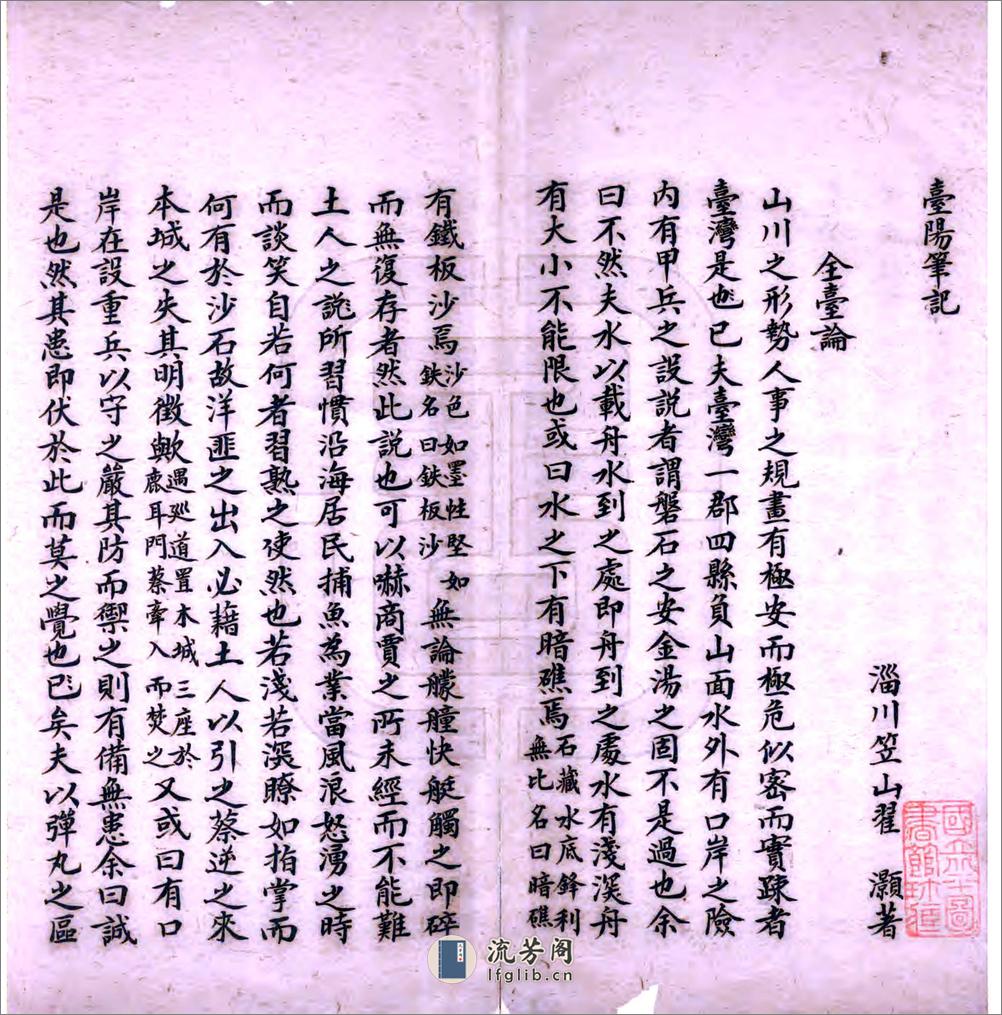 臺陽筆記
淄川笠山翟　灝著
全臺論
山川之形勢人事之規畫有極安而極危似密而實疎者
臺灣是也已夫臺灣一郡四縣負山面水外有口岸之險
内有甲兵之設説者謂磐石之安金湯之固不是過也余
曰不然夫水以載舟水到之處即舟到之處水有淺深舟
有大小不能限也或曰水之下有暗礁焉石藏水底鋒利無比名曰暗礁
有鐵板沙焉沙色如墨性堅如鉄名曰鉄板沙無論艨艟快艇觸之即碎
而無復存者然此説也可以嚇商賈之所未經而不能難
土人之詭所習慣沿海居民捕魚為業當風浪怒湧之時
而談笑自若何者習熟之使然也若淺若深瞭如指掌而
何有於沙石故洋匪之出入必藉土人以引之蔡逆之來
本城之失其明徵歟遇巡道置木城三座於鹿耳門蔡牽入而焚之又或曰有口
岸在設重兵以守之嚴其防而禦之則有備無患余曰誠
是也然其患即伏於此而莫之覺也已矣夫以彈丸之區
國立圖
書館
流芳阁
lfglib.cn